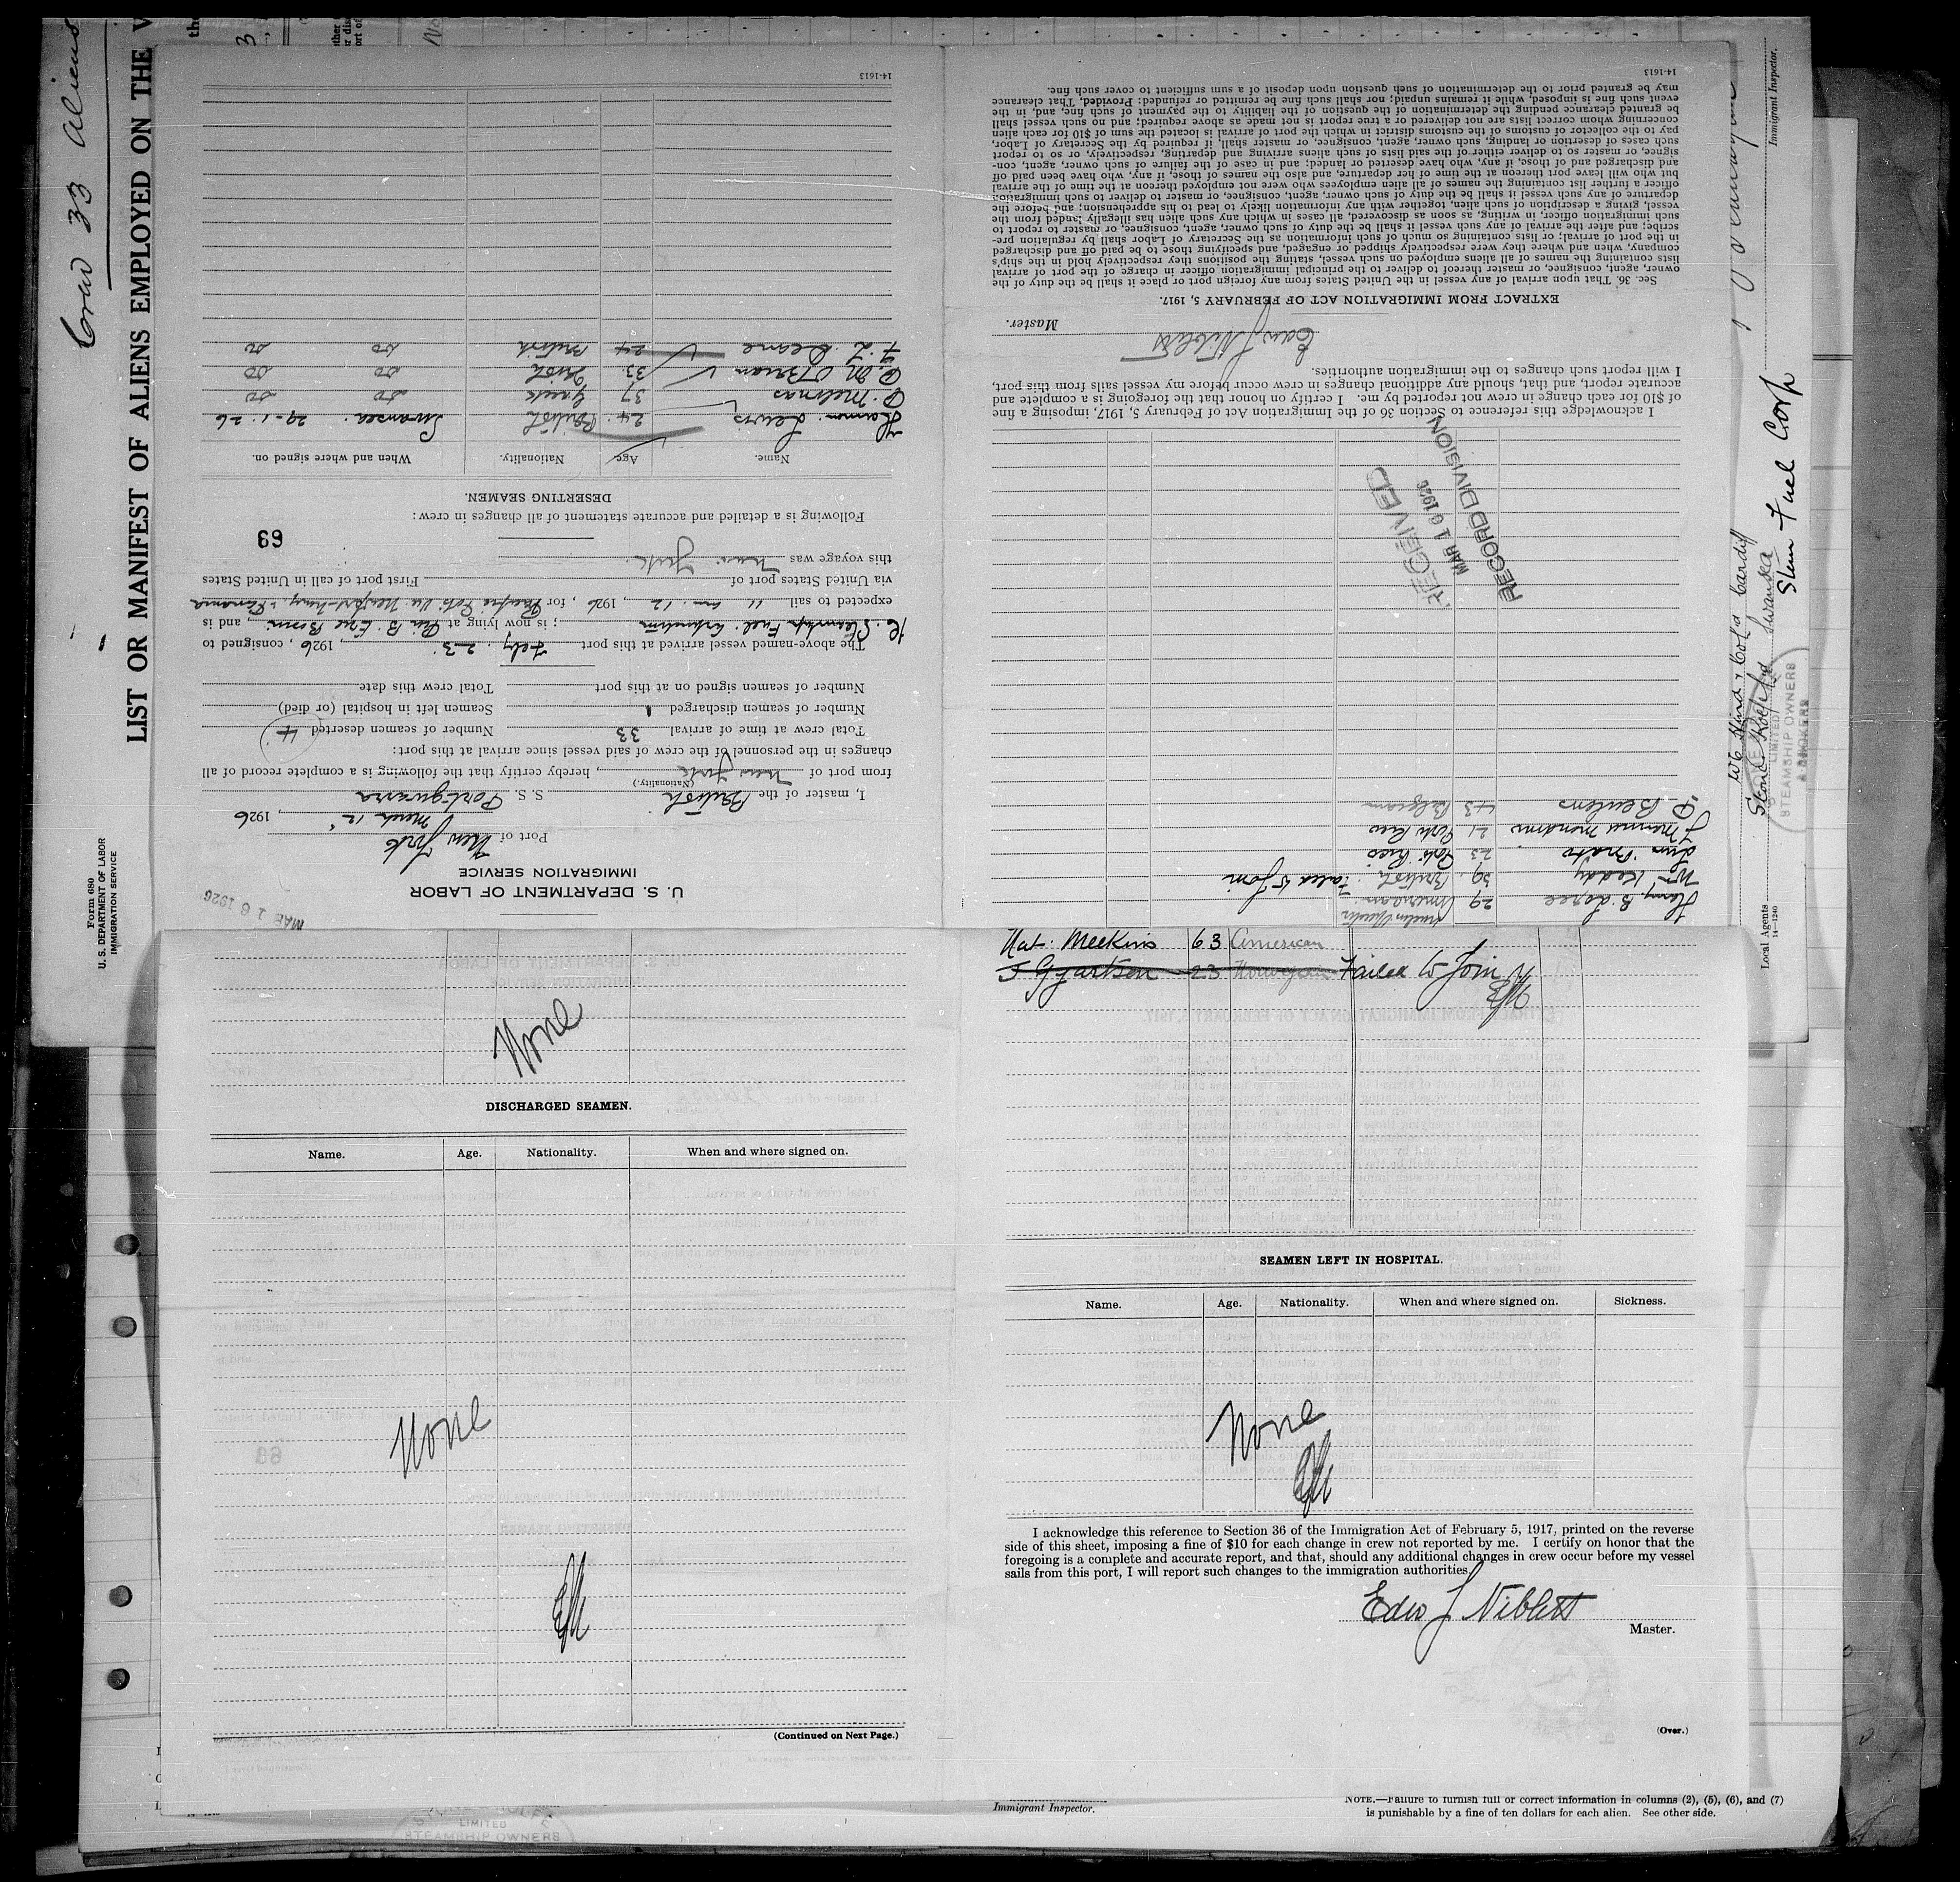 Crew 33 aliens
LIST OR MANIFEST OF ALIENS EMPLOYED ON THE V
Form 680
U. S. DEPARTMENT OF LABOR
IMMIGRATION SERVICE
MAR 16 1926
U. S. DEPARTMENT OF LABOR
IMMIGRATION SERVICE
Port of New York
March 12, 1926
I, master of the British S. S.
(Nationality.)
from port of New York, hereby certify that the following is a complete record of all
changes in the personnel of the crew of said vessel since arrival at this port:
Total crew at time of arrival 33 Number of seamen deserted 4
Number of seamen discharged Seamen left in hospital (or died)
Number of seamen signed on at this port Total crew this date
The above-named vessel arrived at this port Feby. 23, 1926, consigned to
Fuel Corporation; is now lying at Pier B. and is
expected to sail 11 am. 12, 1926, for
via United States port of First port of call in United States
this voyage was New York
63
Following is a detailed and accurate statement of all changes in crew:
DESERTING SEAMEN.
Name. Age. Nationality. When and where signed on.
Lewis 24 British Swansea. 29-1-26
Melinas 37 Greek do do
M OBrian 33 Irish do do
Deane 24 British do do
14-1613
Henry B. Lopee 29 American
Wm Keddy 39 British Failed to Join
Luis Mato 23 Porto Rico
21 Porto Rico
P. Beulens 43 Belgium
RECEIVED
MAR 16 1926
RECORD DIVISION
I acknowledge this reference to Section 36 of the Immigration Act of February 5, 1917, imposing a fine
of $10 for each change in crew not reported by me. I certify on honor that the foregoing is a complete and
accurate report, and that, should any additional changes in crew occur before my vessel sails from this port,
I will report such changes to the immigration authorities.
Edw J Niblett
Master.
EXTRACT FROM IMMIGRATION ACT OF FEBRUARY 5, 1917.
Sec. 36. That upon arrival of any vessel in the United States from any foreign port or place it shall be the duty of the
owner, agent, consignee, or master thereof to deliver to the principal immigration officer in charge of the port of arrival
lists containing the names of all aliens employed on such vessel, stating the positions they respectively hold in the ship's
company, when and where they were respectively shipped or engaged, and specifying those to be paid off and discharged
in the port of arrival; or lists containing so much of such information as the Secretary of Labor shall by regulation pre-
scribe; and after the arrival of any such vessel it shall be the duty of such owner, agent, consignee, or master to report to
such immigration officer, in writing, as soon as discovered, all cases in which any such alien has illegally landed from the
vessel, giving a description of such alien, together with any information likely to lead to his apprehension; and before the
departure of any such vessel it shall be the duty of such owner, agent, consignee, or master to deliver to such immigration
officer a further list containing the names of all alien employees who were not employed thereon at the time of the arrival
but who will leave port thereon at the time of her departure, and also the names of those, if any, who have been paid off
and discharged and of those, if any, who have deserted or landed; and in case of the failure of such owner, agent, con-
signee, or master so to deliver either of the said lists of such aliens arriving and departing, respectively, or so to report
such cases of desertion or landing, such owner, agent, consignee, or master shall, if required by the Secretary of Labor,
pay to the collector of customs of the customs district in which the port of arrival is located the sum of $10 for each alien
concerning whom correct lists are not delivered or a true report is not made as above required; and no such vessel shall
be granted clearance pending the determination of the question of the liability to the payment of such fine, and, in the
event such fine is imposed, while it remains unpaid; nor shall such fine be remitted or refunded: Provided, That clearance
may be granted prior to the determination of such question upon deposit of a sum sufficient to cover such fine.
14-1613
Immigrant Inspector.
Stone & Rolfe Ltd Swansea
Fuel Corp
LIMITED
STEAMSHIP OWNERS
& BROKERS
Local Agents
14-1240
None
DISCHARGED SEAMEN.
Name. Age. Nationality. When and where signed on.
None
(Continued on Next Page.)
Nat. Meekins 63 American
J Gjartsen 23 Norwegian Failed to Join
SEAMEN LEFT IN HOSPITAL.
Name. Age. Nationality. When and where signed on. Sickness.
None
I acknowledge this reference to Section 36 of the Immigration Act of February 5, 1917, printed on the reverse
side of this sheet, imposing a fine of $10 for each change in crew not reported by me. I certify on honor that the
foregoing is a complete and accurate report, and that, should any additional changes in crew occur before my vessel
sails from this port, I will report such changes to the immigration authorities
Edw J Niblett
Master.
(Over.)
LIMITED
STEAMSHIP OWNERS
Immigrant Inspector.
NOTE.—Failure to furnish full or correct information in columns (2), (5), (6), and (7)
is punishable by a fine of ten dollars for each alien. See other side.